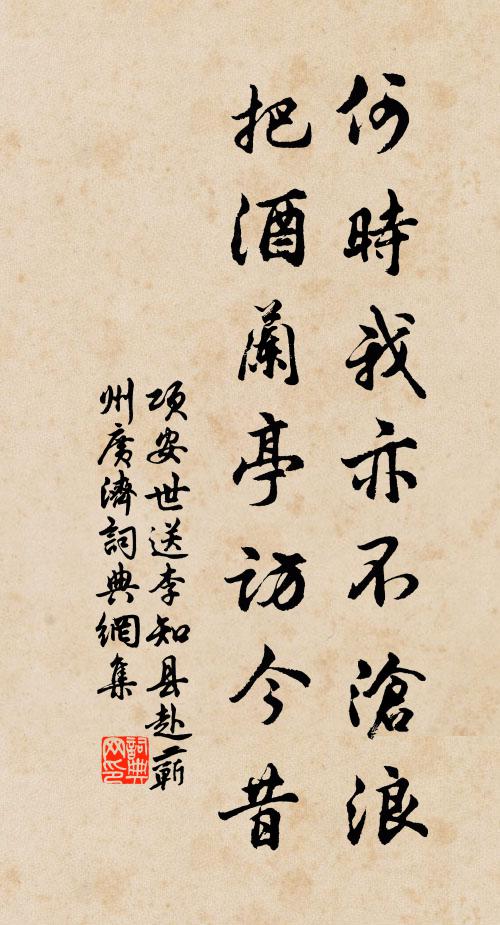 何時我亦不滄浪
把酒蘭亭訪今昔
項安世送李知县赴蘄
州廣濟詞典網集
詞典
网印